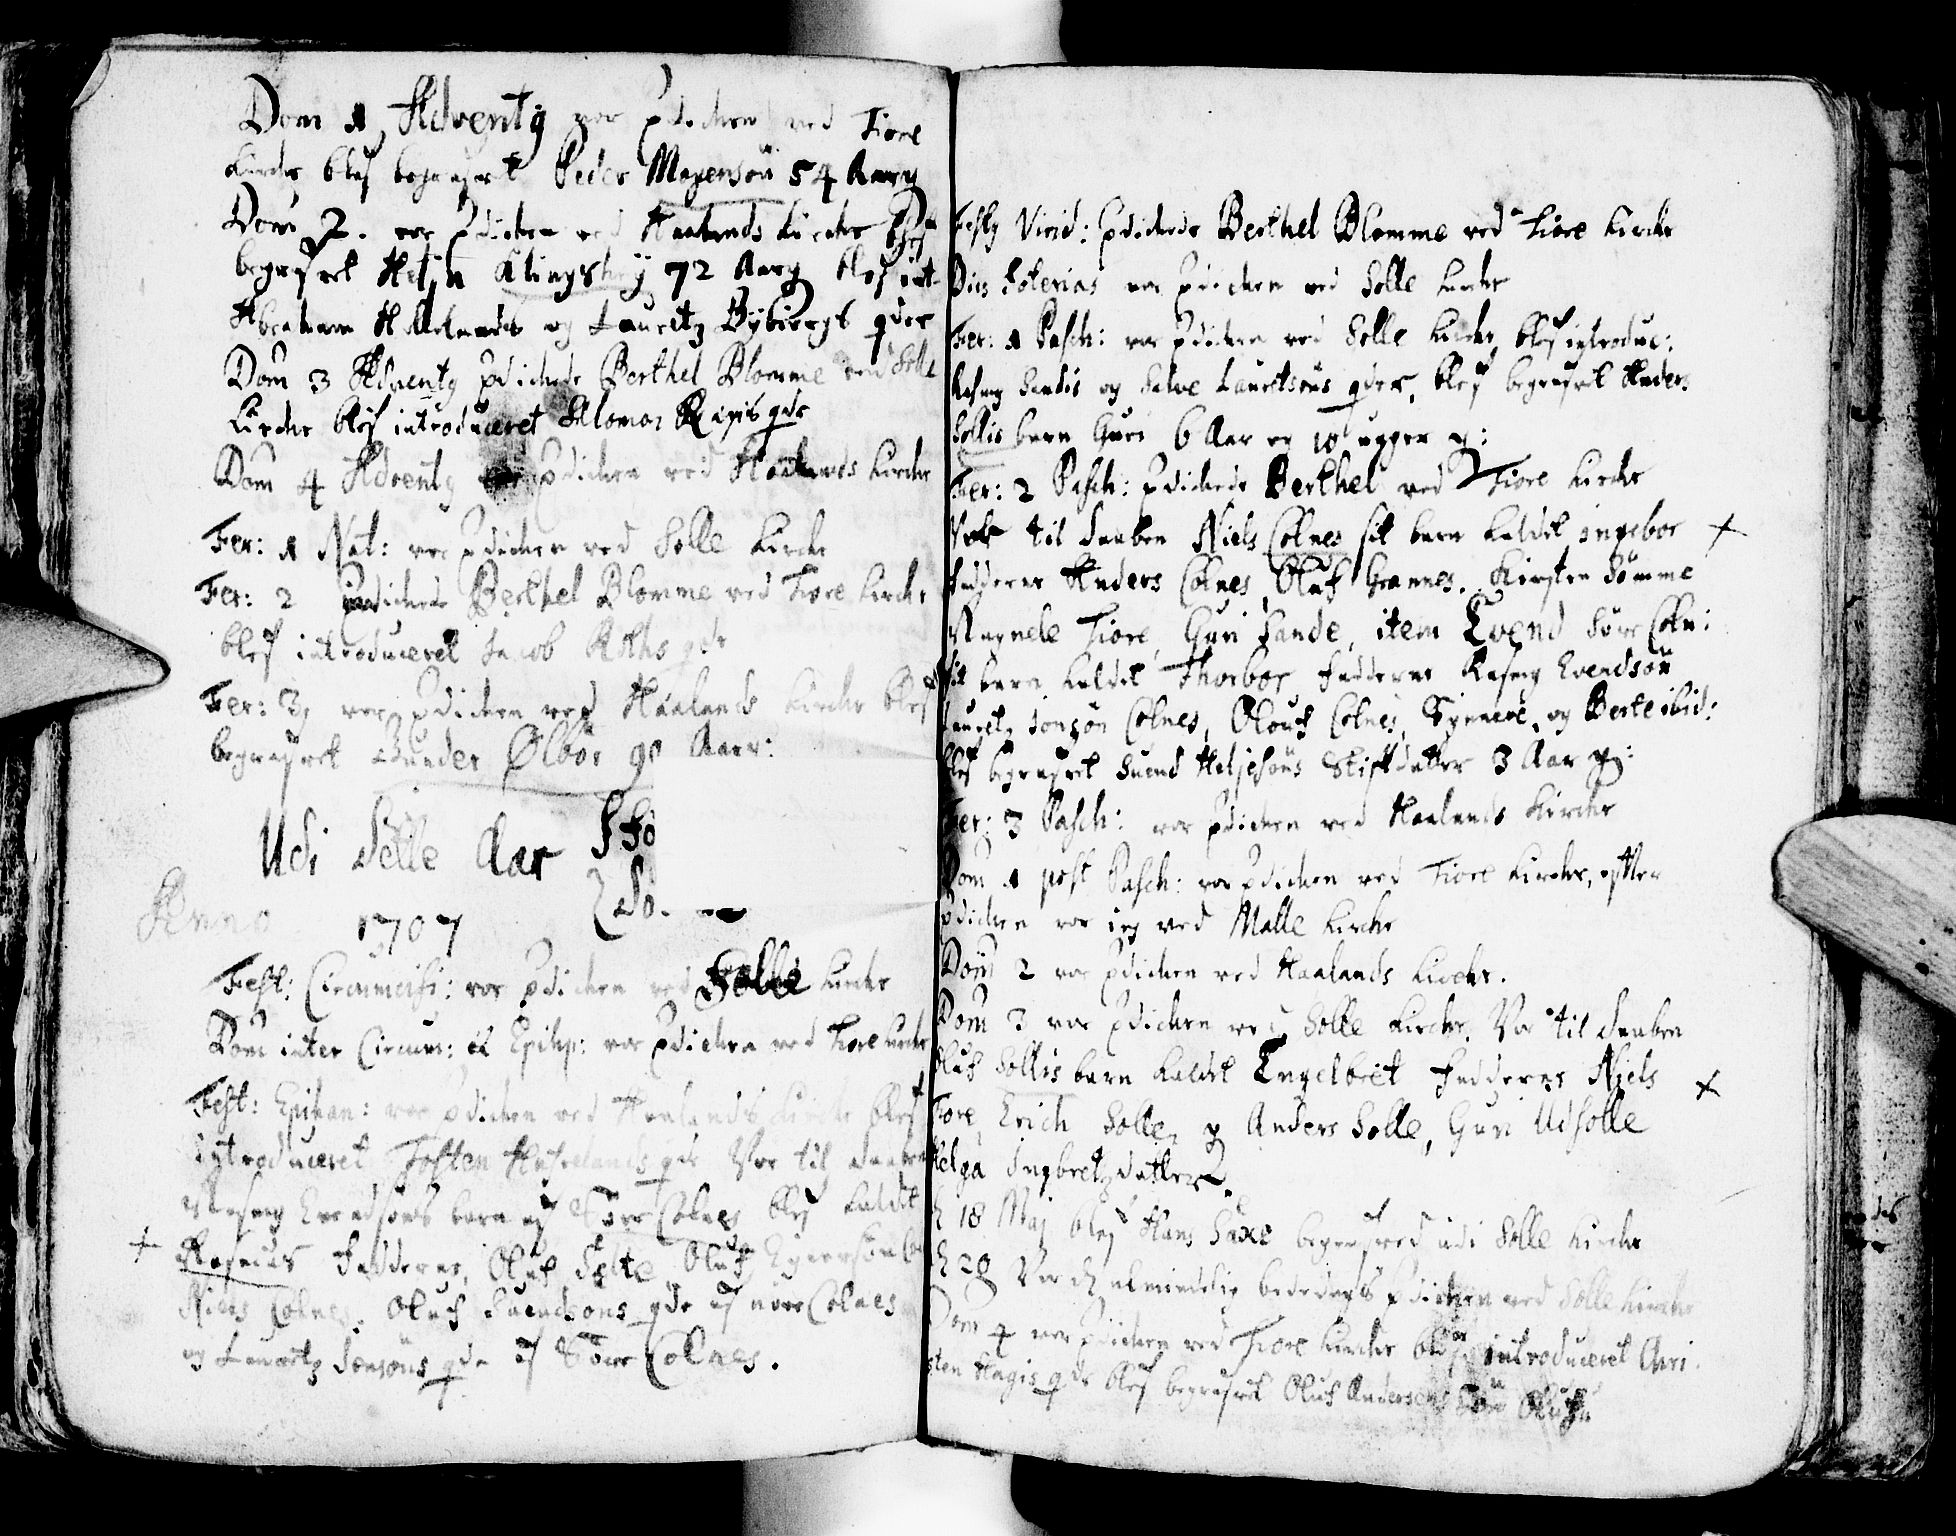 Dom 1 Adventg var Pdicken ved Tiore
kircke blef begrafvet Peder Mogensøn 54 Aarg
Dom 2. var Pdicken ved Haalands kircke blef
begrafvet 72 Aarg blef int
Abraham og Lauritz Bybiergs qder
Dom 3 Adventg Pdickede Berthel Blomme ved Solle
kircke blef introduceret Salomon qde
Dom 4 Adventg Pdicken ved Haalands kircke
Fer: 1 Nat: var Pdicken ved Solle kircke
Fer: 2 Pdickede Berthel Blomme ved Tiore kircke
blef introduceret Jacob qde
Fer: 3, var Pdicken ved Haalands kircke blef
begrafvet Gunder Ølbør 90 Aarr:
Udi Selle Aar
Anno 1707
Fest: Circumcisi: var Pdicken ved Solle kircke
Dom inter Circum: et Epiph: var Pdicken ved Tiore kircke
Fest: Epiphan: var Pdicken ved Haalands kircke blef
introduceret Tosten qde Var til daaben
Rasmg Evendsøns barn af Søre Colnes blef kaldet
+ Rasmus Fadderne, Oluf Selte Oluf
Niels Colnes. Oluf Suendsøns qde af nore Colnes
og Lauritz Jensøns qde af Søre Colnes.
Festg Virid: Pdickede Berthel Blomme ved Tiore kircke
Dies Soterias var Pdicken ved Solle kircke
Fer: 1 Pasch: var Pdicken ved Solle kircke, blef introduc:
Rasmg Sandis og Salve Lauritsøns qder, blef begrafvet Anders
Sollis barn Guri 6 Aar og 10 ugger g:
Fer: 2 Pasch: Pdickede Berthel ved Tiore kircke
Var til daaben Niels Colnes sit barn kaldet ingebor +
fadderne Anders Colnes, Oluf Grannes. Kirsten Sømme
Magnele Tiore, Guri Sande, item Evend Søre Coln:
sit barn kaldet Thorbor Fadderne Rasmg Evendsøn
Lauritz Jonsøn Colnes, Olouf Colnes, Synneve, og Berte ibid:
blef begrafvet Suend Heljesøns Stifdatter 3 Aar g:
Fer: 3 Pasch: var Pdicken ved Haalands kircke
Dom 1 post Pasch: var Pdicken ved Tiore kircke, efter
Pdicken var jeg ved Malle kircke
Dom 2 var Pdicken ved Haalands kircke.
Dom 3 var Pdicken ved Solle kircke. Var til daaben
Oluf Sollis barn kaldet Engelbret Fadderne Niels +
Tore, Erich Solle, og Anders Solle, Guri Udsolle
Helga Ingbretzdatter.
d 18 Maj blef Hans Saxe begrafved udi Solle kircke
d 20 Var dh almindelig bededags Pdicken ved Solle kircke
Dom 4 var Pdicken ved Tiore kircke blef introduceret Chri
sten Hagis qde blef begrafvet Oluf Andersens Søn Oluf